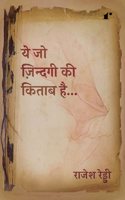 ये जो
ज़िन्दगी की
किताब है...
राजेश रेड्डी